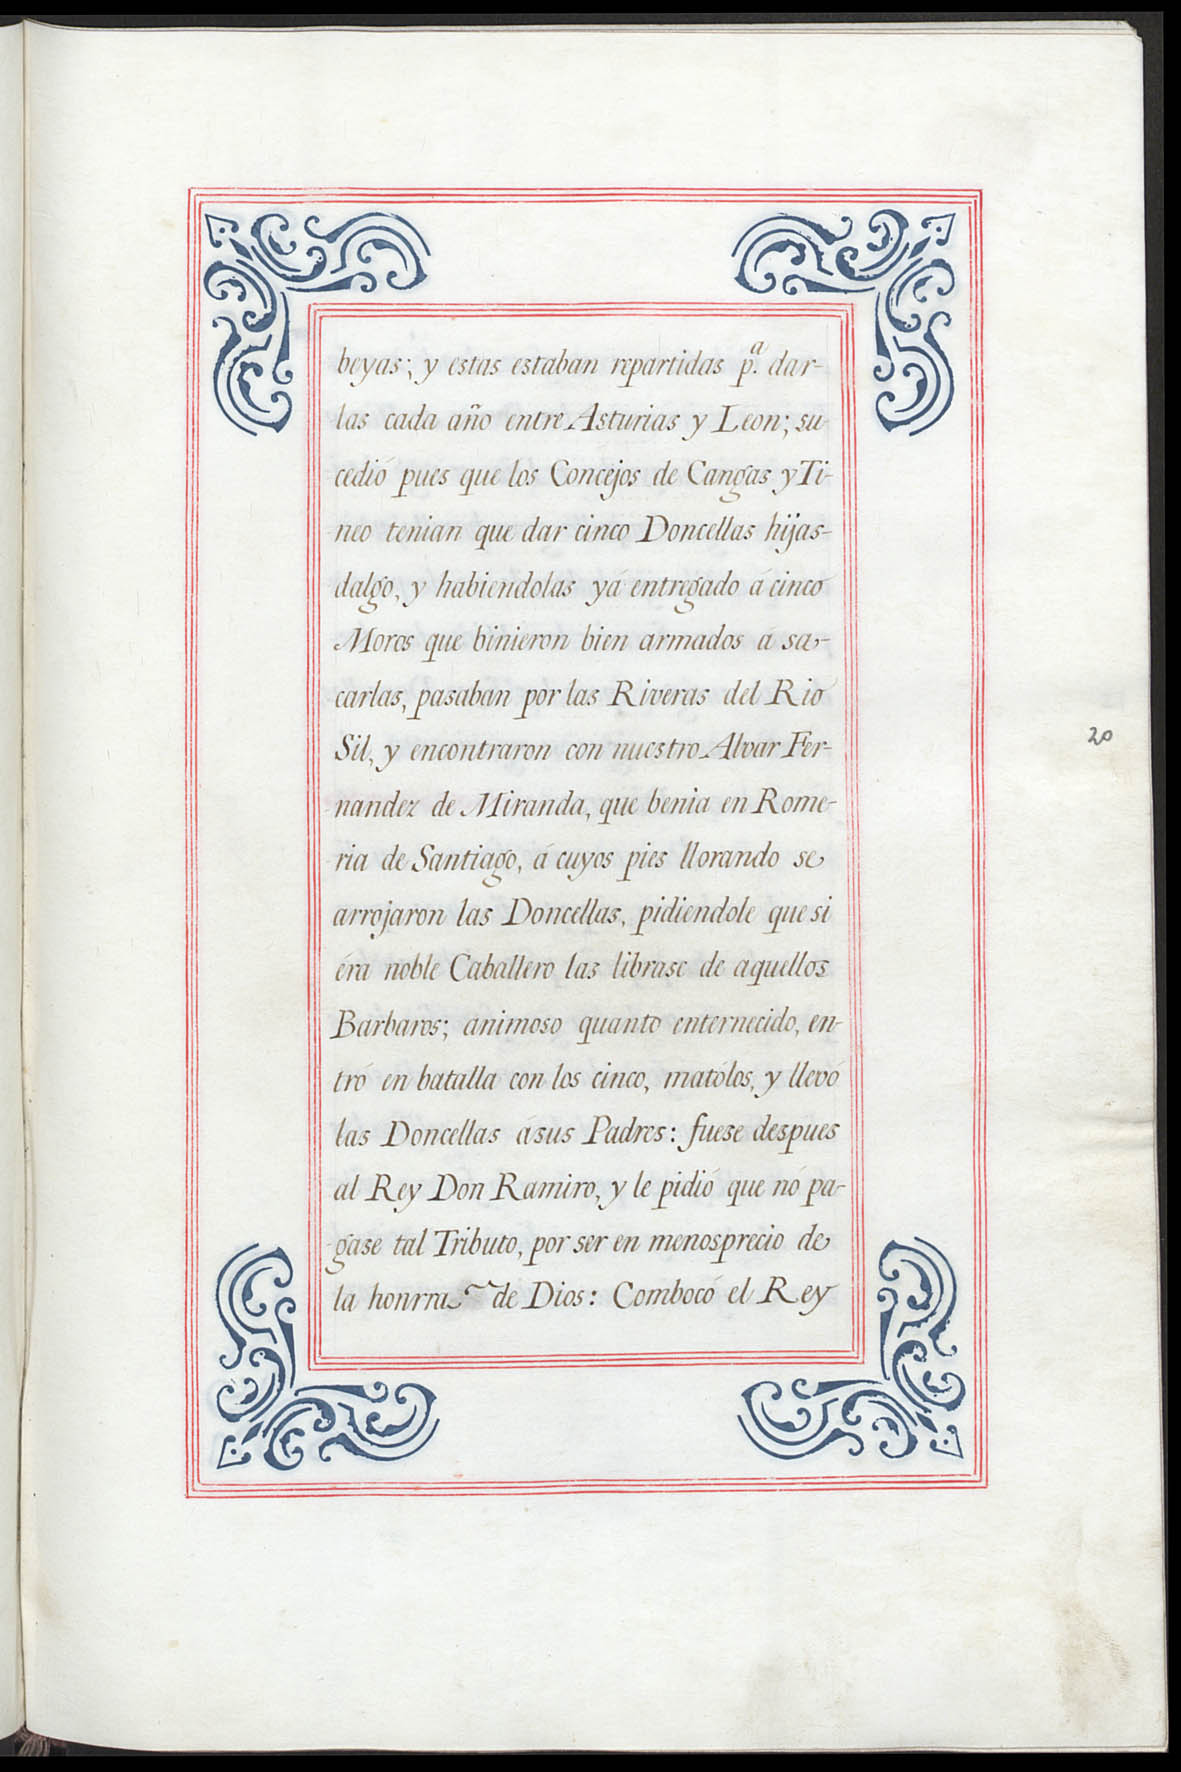 beyas; y estas estaban repartidas p.ª dar-
las cada año entre Asturias y Leon; su
cedió pues que los Concejos de Cangas y Ti-
neo tenian que dar cinco Doncellas hijas-
dalgo, y habiendolas yá entregado á cinco
Moros que binieron bien armados á sa-
carlas, pasaban por las Riveras del Rio
Sil, y encontraron con nuestro Alvar Fer-
nandez de Miranda, que benia en Rome-
20
ria de Santiago, á cuyos pies llorando se
arrojaron las Doncellas, pidiendole que si
éra noble Caballero las librase de aquellos
Barbaros; animoso quanto enternecido, en-
tró en batalla con los cinco, matólos, y llevó
las Doncellas ásus Padres: fuese despues
al Rey Don Ramiro, y le pidió que nó pa-
gase tal Tributo, por ser en menosprecio de
la honrra de Dios: Combocó el Rey